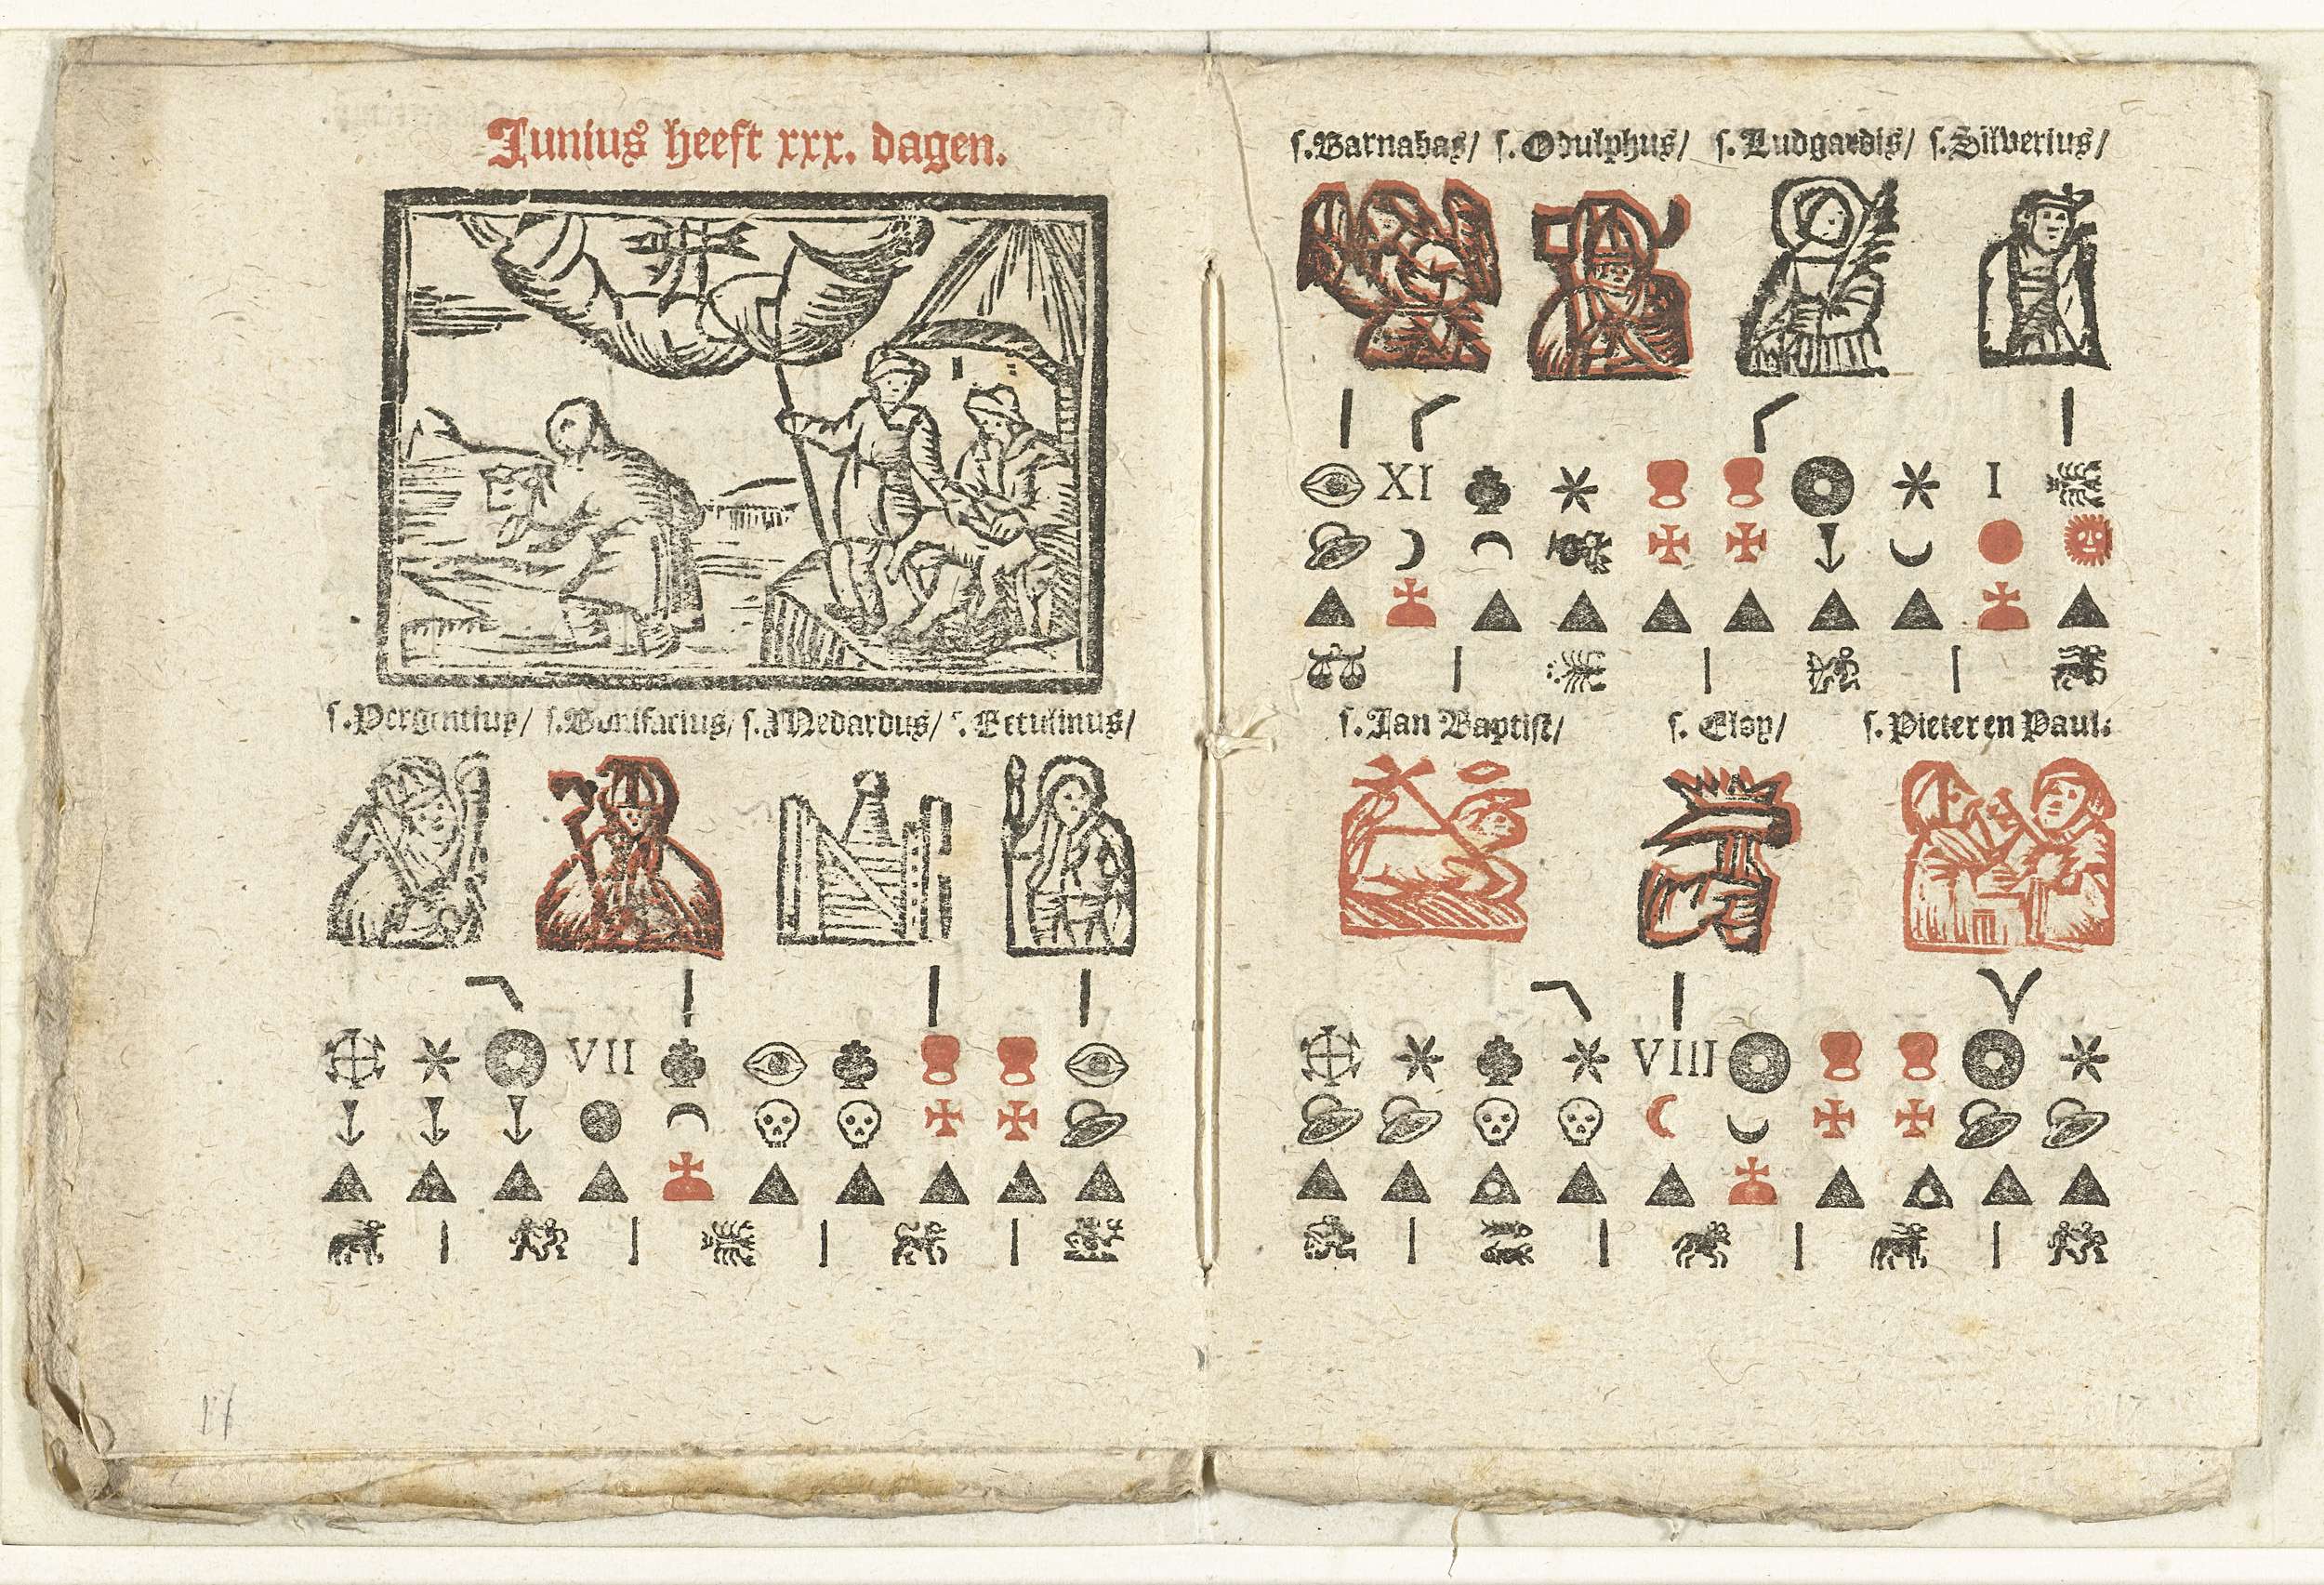 Junius heeft xxx. dagen.
ſ.Pergentius/ ſ.Bonifacius/ ſ.Medardus/ ſ.
VII
ſ.Barnabas/ ſ.Odulphus/ ſ.Ludgardis/ ſ.Silverius/
XI I
ſ.Jan Baptiſt/ ſ. Eloy/ ſ.Pieter en Paul.
VIII
17